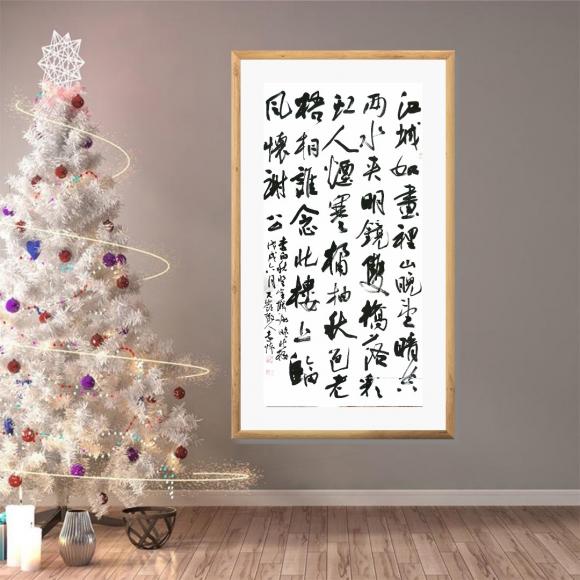 江城如畫裡山晚望晴空
兩水夾明鏡雙橋落彩
虹人煙寒橘柚秋色老
梧桐誰念北樓上臨
風懷謝公
李白秋登宣城謝朓北樓
戊戌六月